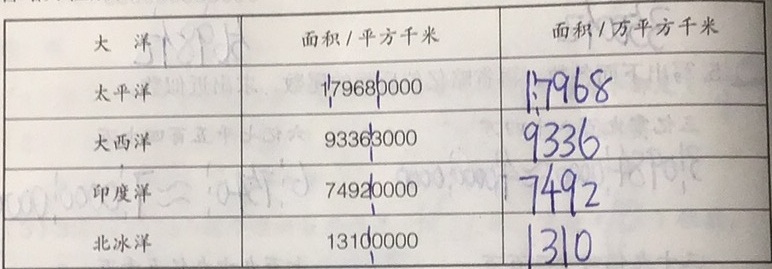 大 洋 面积/平方千米 面积/万平方千米
太平洋 179680000 17968
大西洋 93363000 9336
印度洋 74920000 7492
北冰洋 13100000 1310